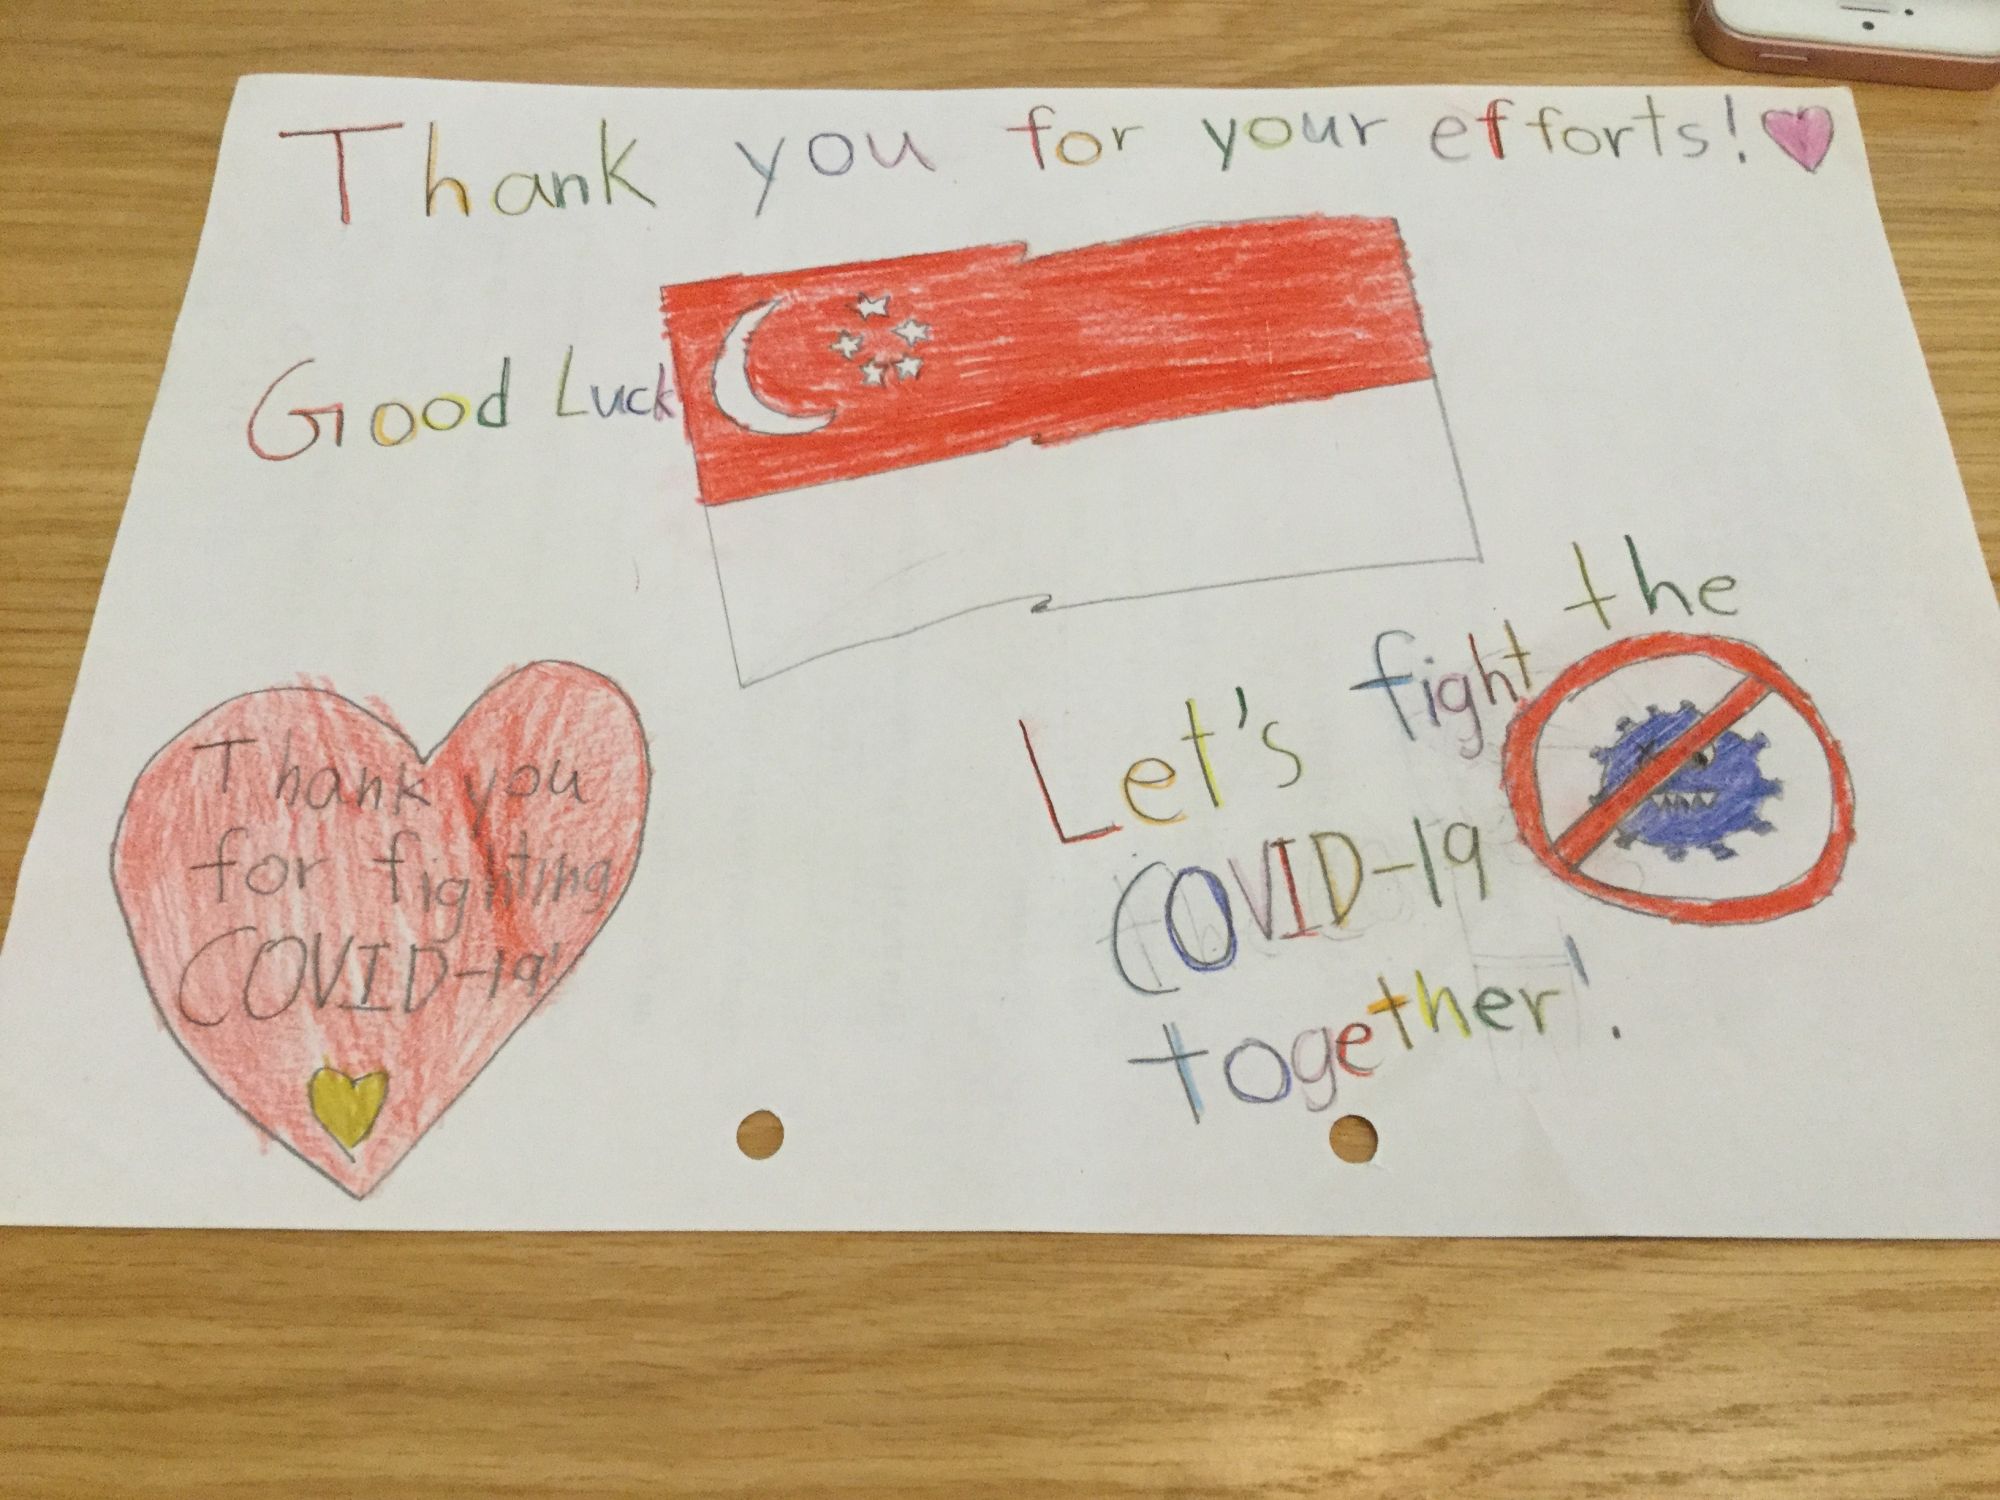 Thank you for your efforts!
Good Luck
Thank you
for fighting
COVID-19!
Let's fight the
COVID-19
together!